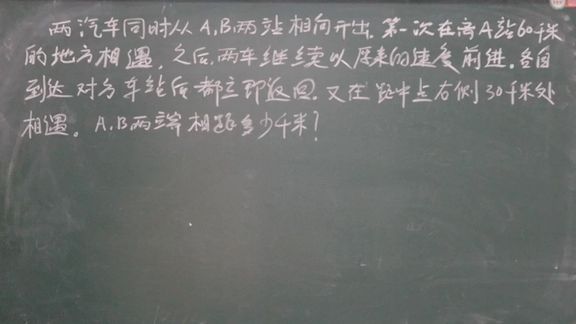 两汽车同时从A.B两站相向开出,第一次在离A站60千米
的地方相遇,之后,两车继续以原来的速度前进.各自
到达对方车站后都立即返回.又在距中点右侧30千米处
相遇。A.B两站相距多少千米?